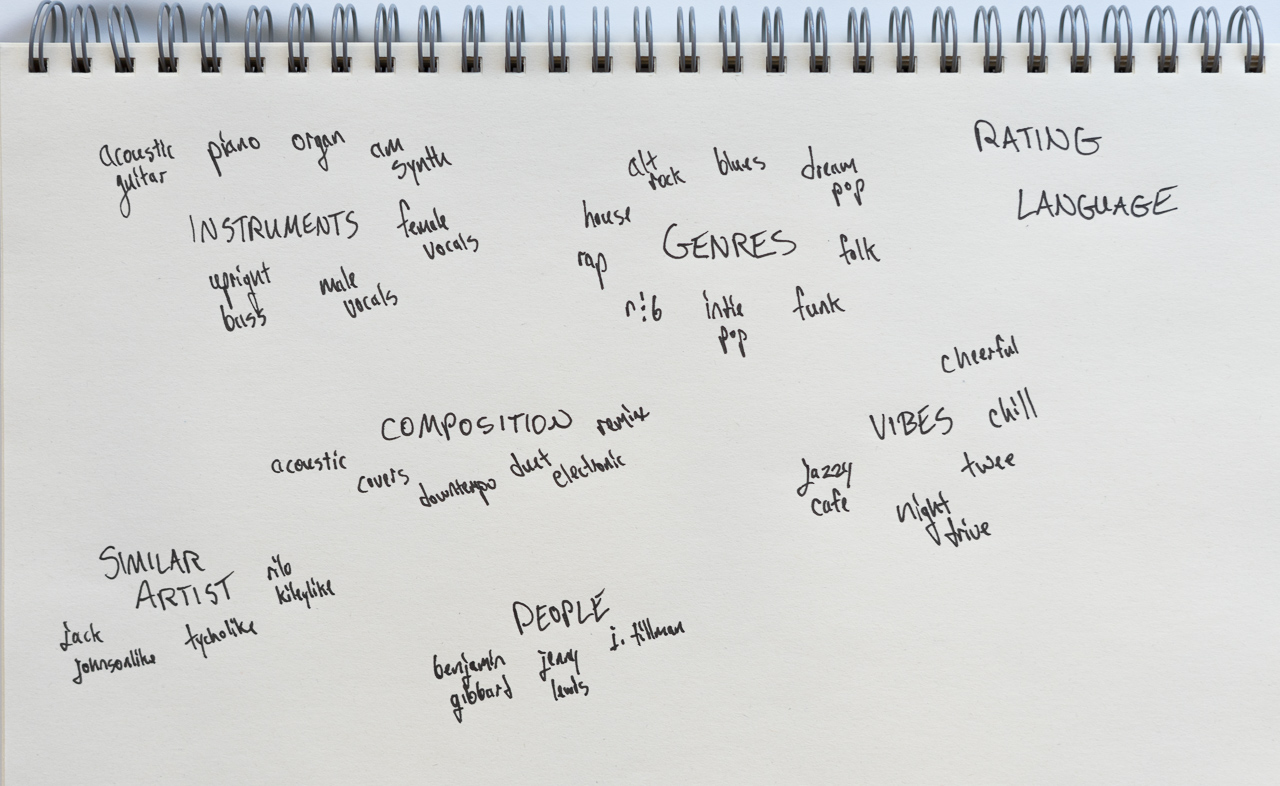 acoustic
guitar
piano
organ
synth
INSTRUMENTS
female
vocals
upright
bass
male
vocals
alt
rock
blues
dream
pop
house
GENRES
rap
folk
r&b
indie
pop
funk
RATING
LANGUAGE
COMPOSITION
remix
acoustic
covers
downtempo
duet
electronic
cheerful
VIBES
chill
jazzy
cafe
twee
night
drive
SIMILAR
ARTIST
rilo
kileylike
jack
johnsonlike
tycholike
PEOPLE
benjamin
gibbard
jenny
lewis
j. tillman